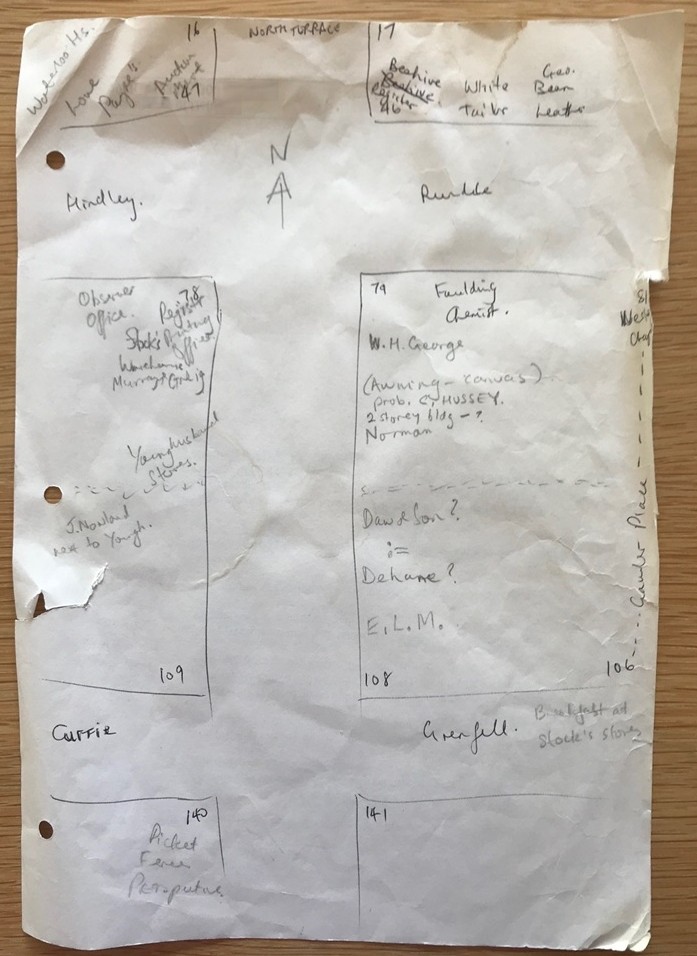 16
NORTH TERRACE
17
Waterloo Hs.
Lowe
Payne's
Auction
Mart
47
Beehive
Beehive
Register
46
White
Tailor
Geo.
Bean
Leather
N
Hindley.
Rundle
Observer
Office.
78
Register
Stock's Printing
Office
Warehouse
Murray & Greig
Younghusband
Stores.
J. Nowland
next to Yough.
109
79
Faulding
Chemist.
W.H. George
(Awning - canvas)
prob. C. HUSSEY.
2 storey bldg - ?
Norman
Daw & Son?
Dehane?
E.L.M.
108
Gawler Place
106
Currie
Grenfell.
Breakfast at
Stock's stores
140
Picket
Fence
Perspective
141